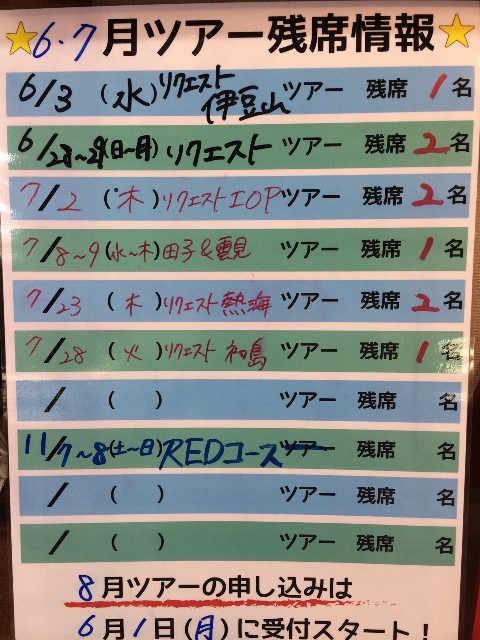 6・7月ツアー残席情報
6/3 (水) リクエスト伊豆山 ツアー 残席 1名
6/28~29(日~月) リクエスト ツアー 残席 2名
7/2 (木) リクエストIOP ツアー 残席 2名
7/8~9 (水~木) 田子&雲見 ツアー 残席 1名
7/23 (木) リクエスト熱海 ツアー 残席 2名
7/28 (火) リクエスト初島 ツアー 残席 1名
/ ( ) ツアー 残席 名
11/7~8(土~日) REDコース ツアー 残席 名
/ ( ) ツアー 残席 名
/ ( ) ツアー 残席 名
8月ツアーの申し込みは
6月1日(月)に受付スタート!